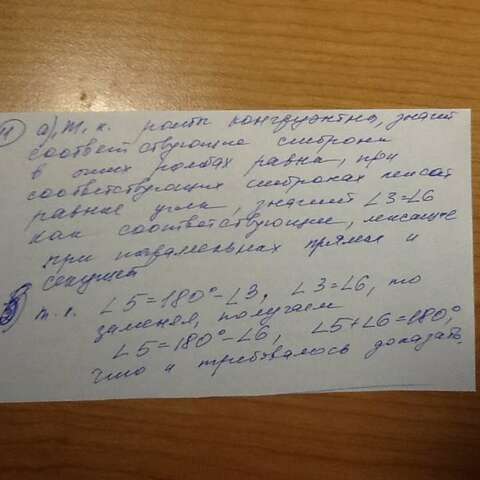 11 а), т. к. ромбы конгруэнтны, значит
соответствующие стороны
в этих ромбах равны, при
соответствующих сторонах лежат
равные углы, значит ∠3=∠6
как соответствующие, лежащие
при параллельных прямых и
секущей
т. к. ∠5=180°-∠3, ∠3=∠6, то
заменяя, получаем
∠5=180°-∠6, ∠5+∠6=180°,
что и требовалось доказать.